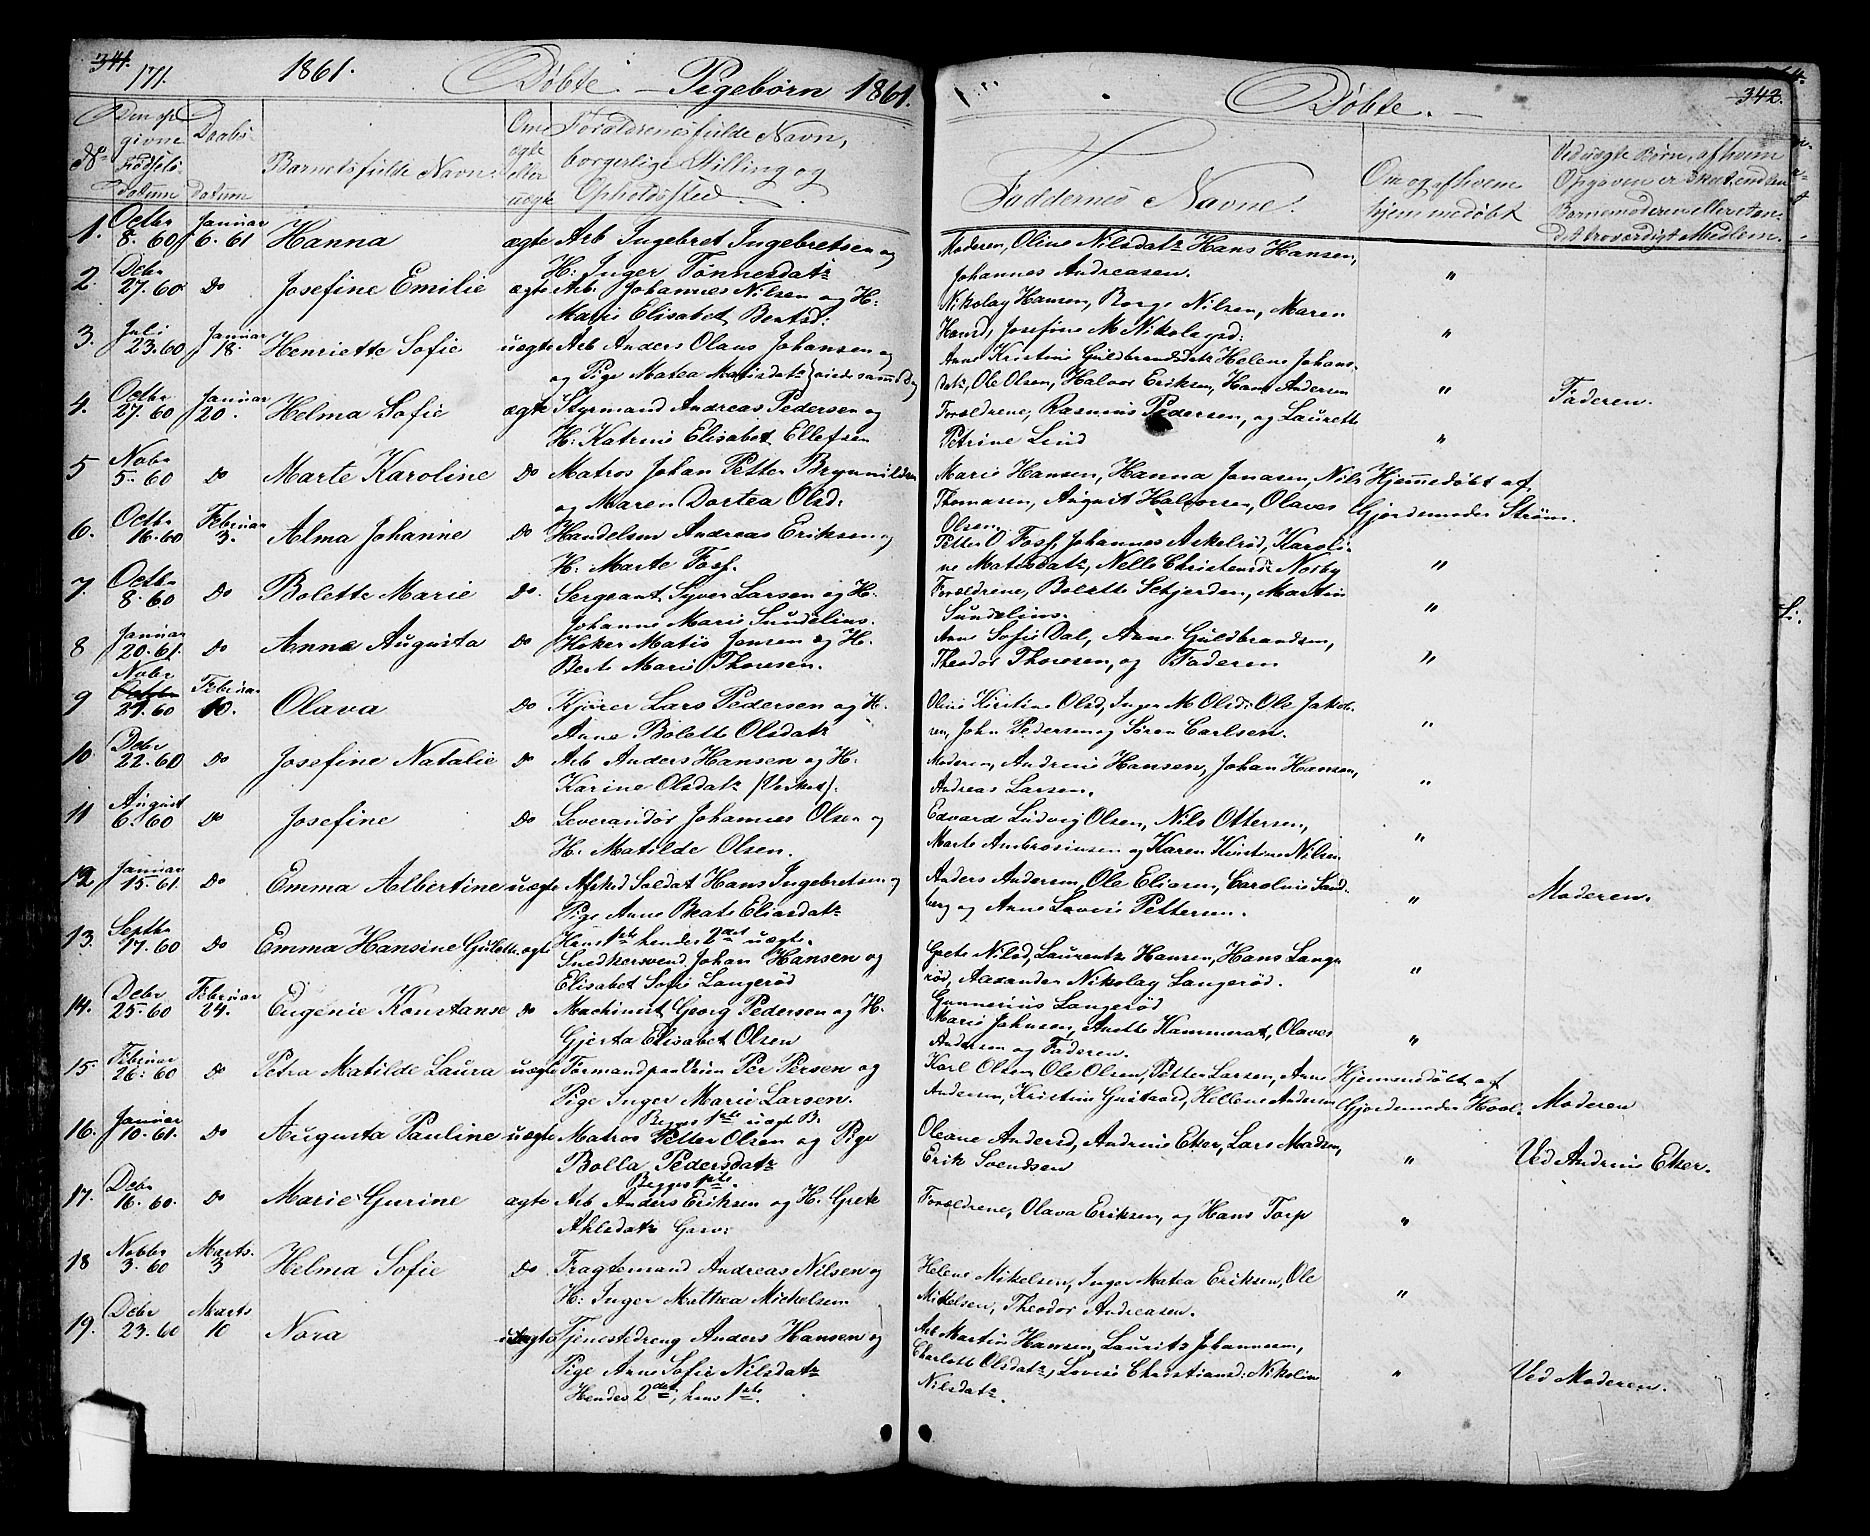 341.
171.
1861. Døbte. — Pigebørn 1861.
No
Den opgivne Fødselsdatum
Daabsdatum
Barnets fulde Navn.
Om ægte eller uægte
Forældrenes fulde Navn, borgerlige Stilling og Opholdssted.
1. Octbr 8. 60 Januar 6. 61 Hanna ægte Arb Ingebret Ingebretsen og
H: Inger Tønnesdatr
2. Debr 27. 60 Do Josefine Emilie ægte Arb. Johannes Nilsen og H:
Marie Elisabet Bentsd:
3. Juli 23. 60 Januar 18. Henriette Sofie uægte Arb Anders Olaus Johansen og
og Pige Matea Matisdatr
4. Octbr 27. 60 Januar 20. Helma Sofie ægte Styrmand Andreas Pedersen og
H: Katrine Elisabet Ellefsen
5 Nobr 5. 60 Do Marte Karoline Do Matros Johan Petter Brynnildsen
og Maren Dortea Olsd:
6. Octbr 16. 60 Februar 3. Alma Johanne Do Handelsm Andreas Eriksen og
H. Marte Foss.
7. Octbr 8. 60 Do Bolette Marie Do. Sergeant Syver Larsen og H.
Johanne Marie Sundelius.
8 Januar 20. 61. Do Anna Augusta Do Høker Matis Jensen og H.
Berte Marie Thoresen.
9 Nobr 21. 60 Februar 10. Olava Do Kjører Lars Pedersen og H.
Anne Bolette Olsdatr
10 Debr 22. 60 Do Josefine Natalie Do Arb Anders Hansen og H.
Karine Olsdatr (Værket).
11 August 6. 60 Do Josefine Do Leverandør Johannes Olsen og
H. Matilde Olsen.
12 Januar 15. 61. Do Emma Albertine uægte Afsked Soldat Hans Ingebretsen og
Pige Anne Beate Eliasdatr
Hans 1ste hendes 2det uægte.
13. Septbr 17. 60 Do Emma Hansine ægte Snedkersvend Johan Hansen og
Elisabet Sofie Langerød
14. Debr 25. 60 Februar 24. Eugenie Konstanse Do Machinist Georg Pedersen og H.
Gjerta Elisabet Olsen
15. Februar 26. 60 Do Petra Matilde Laura uægte Formand Per Persen og
Pige Inger Marie Larsen.
Begges 1ste uægte B.
16. Januar 10. 61. Do Augusta Pauline uægte Matros Petter Olsen og Pige
Bolla Pedersdatr
Begges 1ste.
17. Debr 16. 60. Do Marie Gurine ægte Arb Anders Eriksen og H. Grete
18 Nobbr 3. 60 Marts. 3 Helma Sofie Do. Fragtemand Andreas Nilsen og
H: Inger Mathea Mickelsen
19. Debr 23. 60 Marts 10 Nora uægte Tjenestedreng Anders Hansen og
Pige Anne Sofie Nilsdatr
Hendes 2det, hans 1ste.
342.
Døbte. —
Faddernes Navne.
Om og af hvem hjemmedøbt
Ved uægte Børn, af hvem Opgaven er skeet, enten Barnemoderen eller et andet troværdigt Medlem.
Moderen, Oline Nilsdatr Hans Hansen,
Johannes Andreasen. "
Nikolay Hansen, Borge Nilsen, Maren
Hansd, Josefine M Nikolaysd: "
Anne Kristine Guldbrandsdatr Helene Johans
datr, Ole Olsen, Halvor Eriksen, Hans Andersen " Faderen.
Forældrene, Rasmus Pedersen, og Laurette
Petrine Lind "
Marie Hansen, Hanna Jonasen, Nils Hjemmedøbt af
Thomasen, August Halvorsen, Olaves Gjordemoder Strøm.
Olsen.
Petter O Foss, Johannes Askelrød, Karoli-
ne Matisdatr, Nelle Christensd: Nosby "
Forældrene, Bolette Schjerden, Martin
Sundelius. "
Ane Sofie Dal, Anne Guldbrandsen,
Theodor Thoresen, og Faderen "
Oline Kirstine Olsd, Inger M Olsd: Ole Jakob-
sen, John Pedersen og Søren Carlsen. "
Moderen, Andrine Hansen, Johan Hansen,
Andreas Larsen. "
Edvard Ludvig Olsen, Nils Ottersen,
Marte Ambrosiusen og Karen Kirstine Nilsen "
Anders Andersen, Ole Eliasen, Caroline Sand-
berg og Anne Lovise Pettersen. " Moderen.
Grete Nilsd, Laurentze Hansen, Hans Lange-
rød, Nikolay Langerød. "
Gunnerius Langerød
Marie Johnsen, Anette Kammerat, Olaves
Andersen og Faderen. "
Karl Olsen Ole Olsen, Petter Larsen, Anne Hjemmedøbt af
Andersen, Kristine Gustavsd, Hellene Andersen Gjordemoder Hool. Moderen
Oleane Andersd, Andrine Eker, Lars Madsen,
Erik Svendsen " Ved Andrine Eker.
Forældrene, Olava Eriksen, og Hans Torp "
Helene Mikelsen, Inger Matea Eriksen, Ole
Mikkelsen, Theodor Andreasen. "
Arb Martin Hansen, Lauritz Johannesen,
Charlotte Olsdatr, Lovise Christiansd: Nikoline " Ved Moderen.
Nilsdatr.